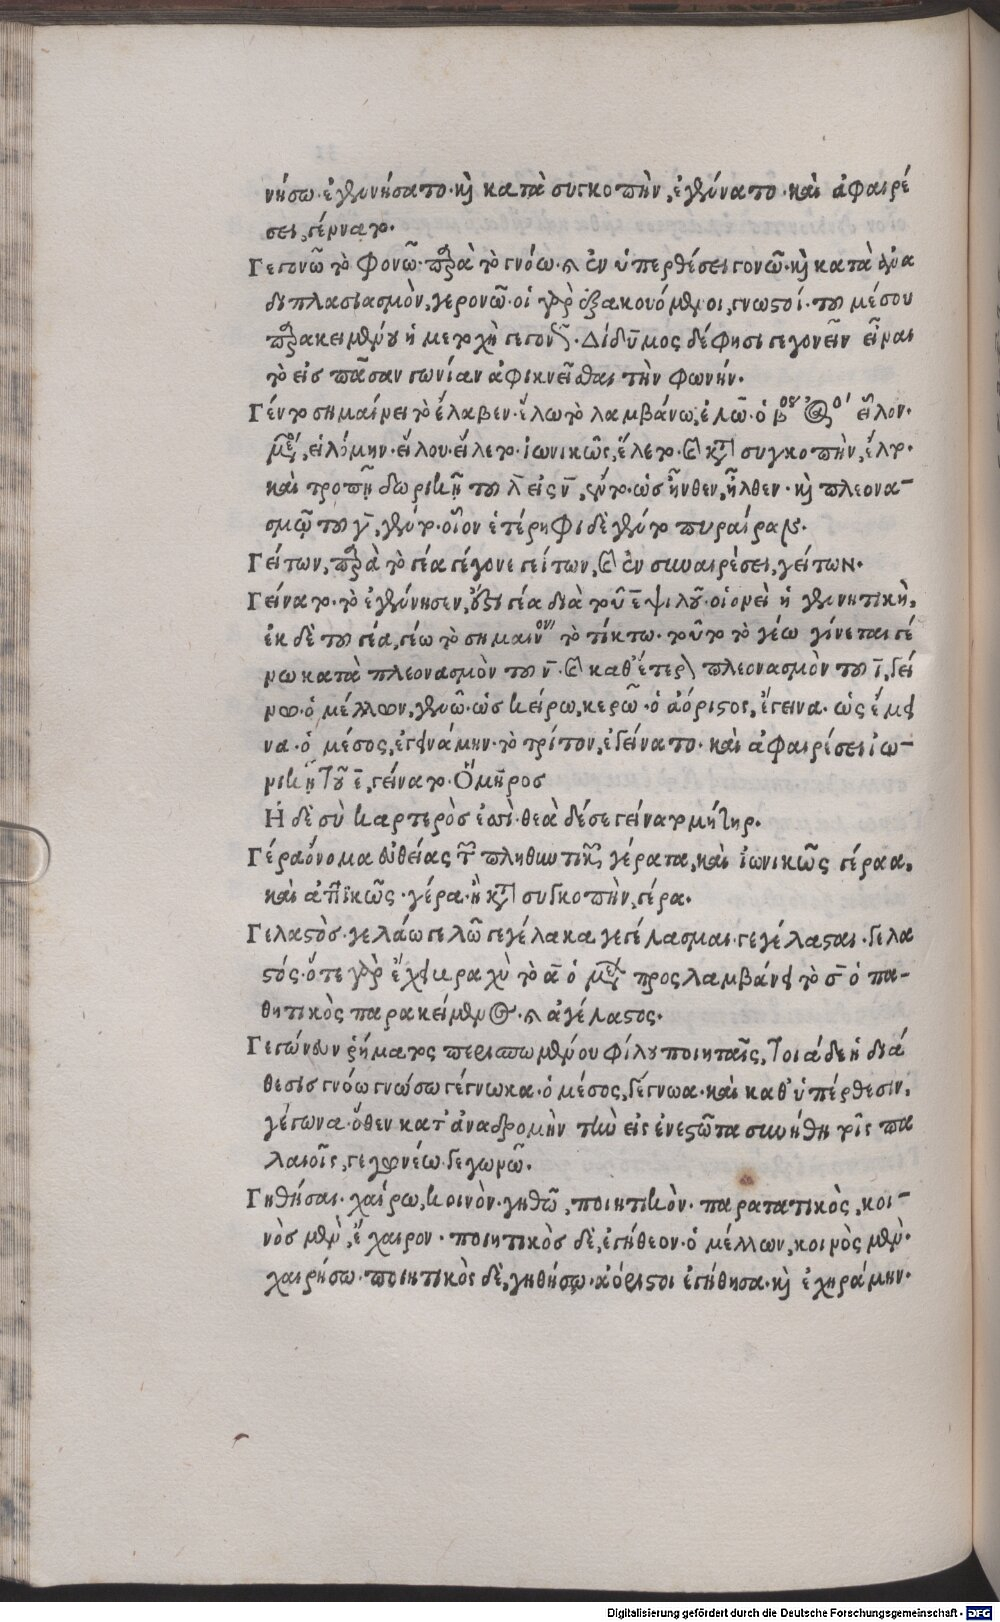 νήσω· ἐγεννήσατο· καὶ κατὰ συγκοπὴν, ἐγείνατο· καὶ ἀφαιρέ
σει, γείνατο.
Γεγωνῶ τὸ φονῶ· παρὰ τὸ γνόω· καὶ ἐν ὑπερθέσει γονῶ· καὶ κατὰ
διπλασιασμὸν, γεγονῶ· οἱ γὰρ ἐξακουόμενοι, γνωστοί· τοῦ μέσου
παρακειμένου ἡ μετοχὴ γεγονώς. Δίδυμος δέ φησι γεγονεῖν εἶναι
τὸ εἰς πᾶσαν γωνίαν ἀφικνεῖσθαι τὴν φωνήν.
Γέντο σημαίνει τὸ ἔλαβεν· ἕλω τὸ λαμβάνω, ἑλῶ· ὁ βος ἀόρι εἷλον·
μέσος, εἱλόμην· εἵλου· εἵλετο· ἰωνικῶς, ἕλετο· καὶ κατὰ συγκοπὴν, ἕλτο·
καὶ τροπῇ δωρικῇ τοῦ λ̄ εἰς ν̄, ἕντο· ὡς ἦνθεν, ἦλθεν· καὶ πλεονα-
σμῷ τοῦ γ̄, γέντο· οἷον ἑτέρηφι δὲ γέντο πυράγραν.
Γείτων, παρὰ τὸ γέα γέγονε γεΐτων, καὶ ἐν συναιρέσει, γείτων.
Γείνατο· τὸ ἐγέννησεν, γέα διὰ τοῦ ε̄ ψιλοῦ· οἱονεὶ ἡ γεννητικὴ,
ἐκ δὲ τοῦ γέα, γέω τὸ σημαῖνον τὸ τίκτω· τοῦτο τὸ γέω γίνεται γέ
νω κατὰ πλεονασμὸν τοῦ ν̄· καὶ καθ' ἕτερον πλεονασμὸν τοῦ ῑ, γεί
νω· ὁ μέλλων, γενῶ· ὡς κείρω, κερῶ· ὁ ἀόριστος, ἔγεινα· ὡς ἔμει
να· ὁ μέσος, ἐγεινάμην· τὸ τρίτον, ἐγείνατο· καὶ ἀφαιρέσει ἰω-
νικῇ τοῦ ε̄, γείνατο· Ὅμηρος
Ἠ δὲ σὺ καρτερὸς ἐσσὶ· θεὰ δέ σε γείνατο μήτηρ.
Γέρα ὄνομα εὐθείας τῶν πληθυντικῶν, γέρατα, καὶ ἰωνικῶς γέραα,
καὶ ἀττικῶς· γέρα· ἢ κατὰ συγκοπὴν, γέρα.
Γελαστὸς· γελάω γελῶ γεγέλακα γεγέλασμαι· γεγέλασται· γελα
στός· ὅτε γὰρ ἔχει βραχὺ τὸ ᾱ ὁ μέλλων προσλαμβάνει τὸ σ̄ ὁ πα-
θητικὸς παρακείμενος· καὶ ἀγέλαστος.
Γεγώνευν ῥήματος περισπωμένου φίλου ποιηταῖς, τοιάδε ἡ διά
θεσις γνόω γνώσω γέγνωκα· ὁ μέσος, γέγνωα· καὶ καθ' ὑπέρθεσιν,
γέγωνα· ὅθεν κατ' ἀναδρομὴν τὴν εἰς ἐνεστῶτα συνήθη τοῖς πα
λαιοῖς, γεγωνέω· γεγωνῶ.
Γηθῆσαι· χαίρω, κοινὸν· γηθῶ, ποιητικὸν· παρατατικὸς, κοι-
νὸς μὲν, ἔχαιρον· ποιητικὸς δὲ, ἐγήθεον· ὁ μέλλων, κοινὸς μὲν·
χαιρήσω· ποιητικὸς δὲ, γηθήσω· ἀόριστοι ἐγήθησα· καὶ ἐχηράμην·
Digitalisierung gefördert durch die Deutsche Forschungsgemeinschaft - DFG